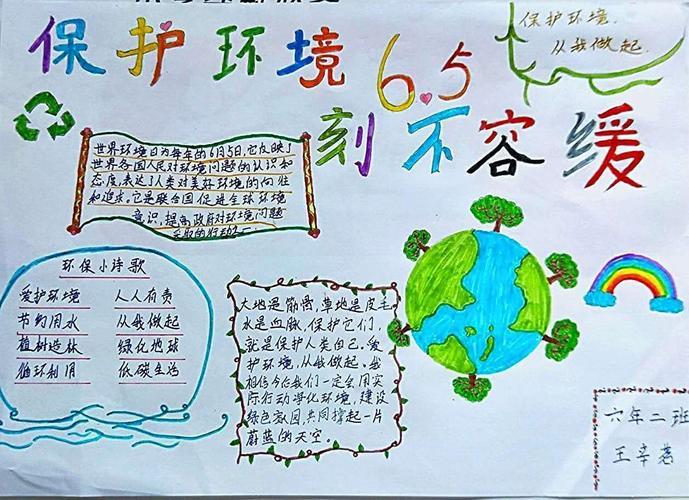 保护环境 6.5
刻不容缓
保护环境.
从我做起.
世界环境日为每年的6月5日,它反映了
世界各国人民对环境问题的认识和
态度,表达了人类对美好环境的向往
和追求。它是联合国促进全球环境
意识,提高政府对环境问题
采取的行动之一.
环保小诗歌
爱护环境 人人有责
节约用水 从我做起
植树造林 绿化地球
循环利用 低碳生活
大地是筋骨,草地是皮毛
水是血脉,保护它们,
就是保护人类自己。爱
护环境,从我做起。我
相信今后我们一定会用实
际行动净化环境,建设
绿色家园,共同撑起一片
蔚蓝的天空。
六年二班